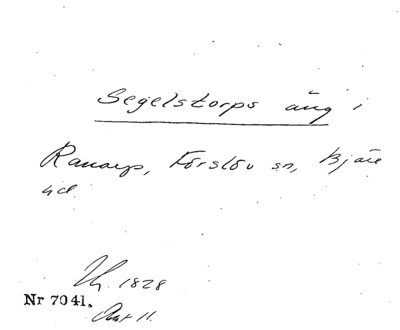 Segelstorps äng i
Ranarp, Förslöv sn, Bjäre
hd.
1828
Nr 7041.
Akt 11.